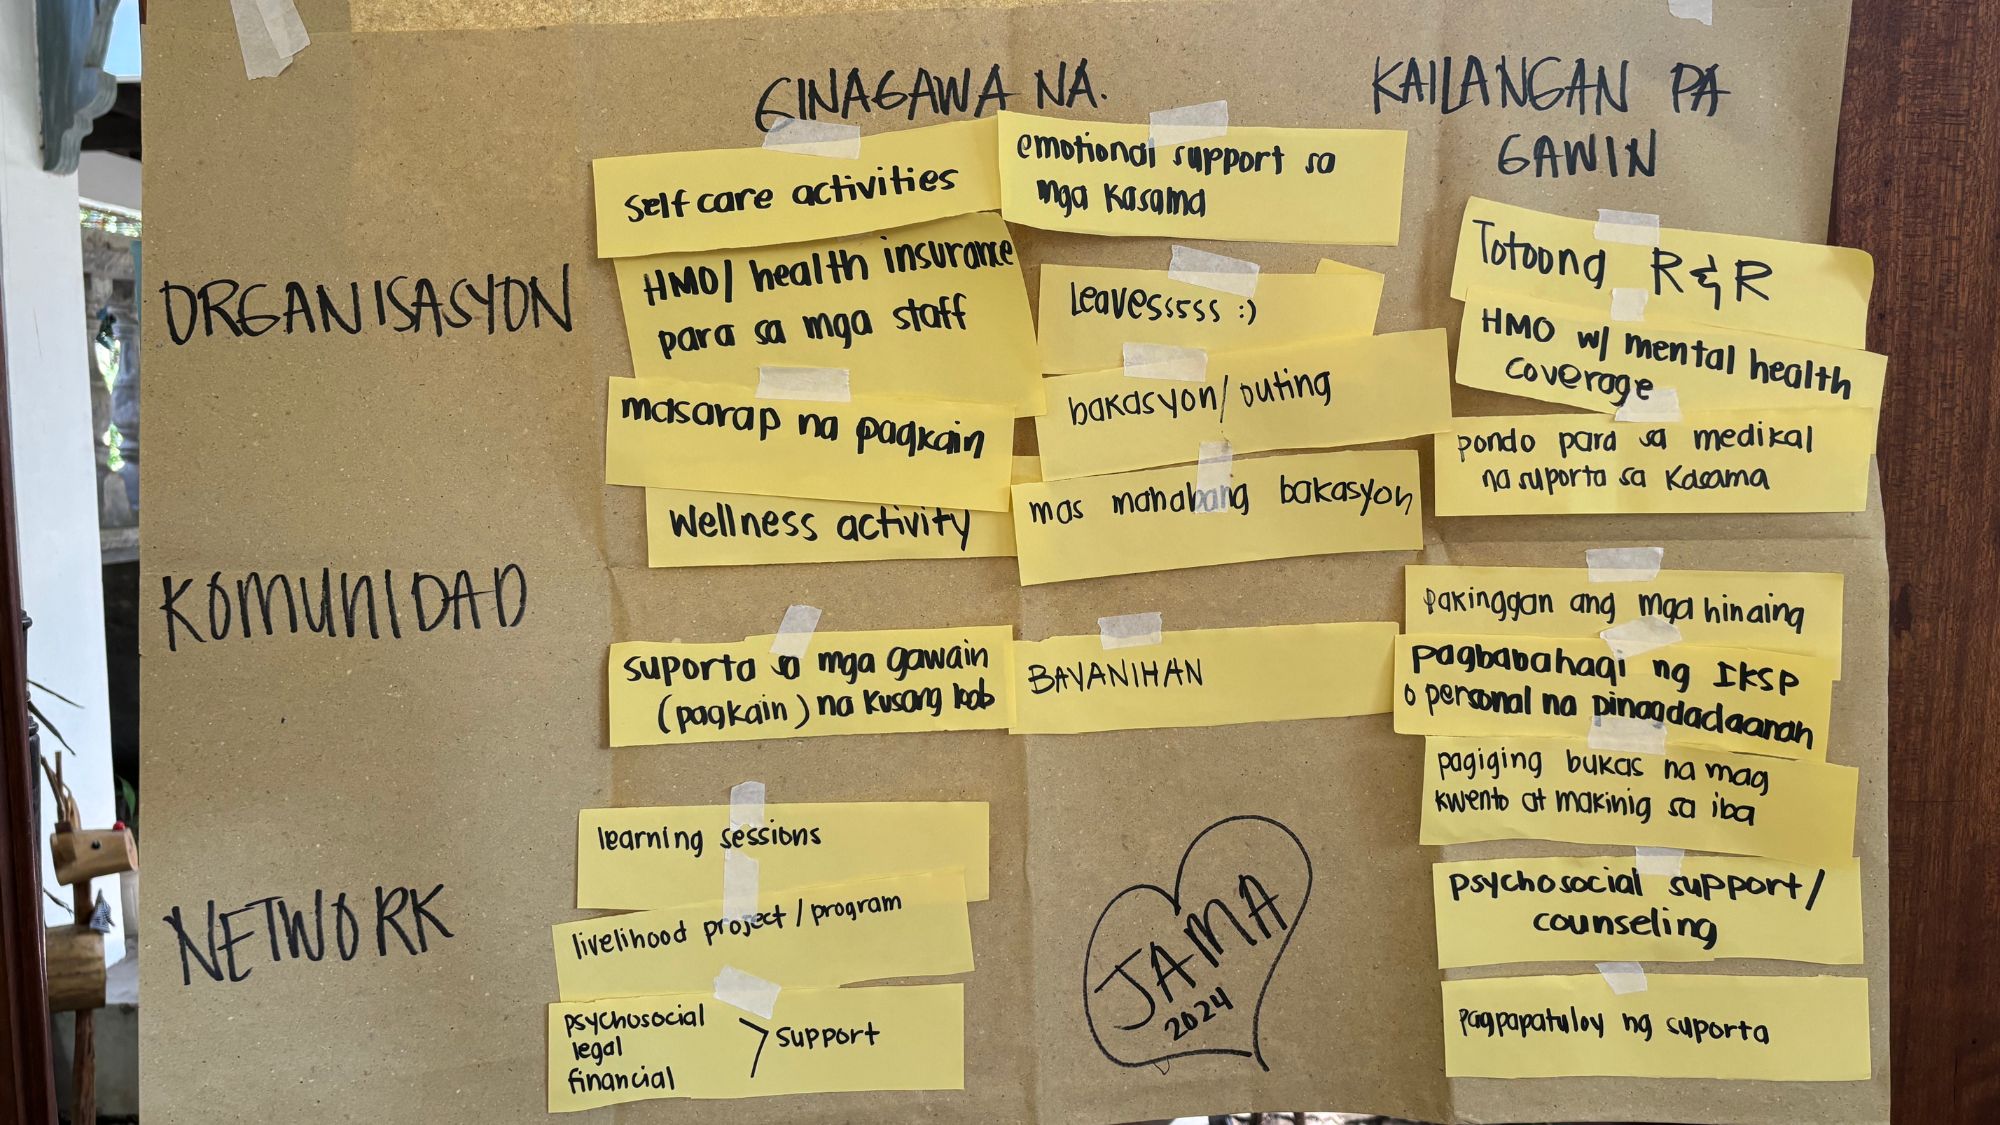 GINAGAWA NA.
KAILANGAN PA
GAWIN
ORGANISASYON
self care activities
HMO/ health insurance
para sa mga staff
masarap na pagkain
wellness activity
emotional support sa
mga kasama
Leavessssss :)
bakasyon/outing
mas mahabang bakasyon
Totoong R & R
HMO w/ mental health
coverage
pondo para sa medikal
na suporta sa kasama
KOMUNIDAD
suporta sa mga gawain
(pagkain) na kusang loob
BAYANIHAN
pakinggan ang mga hinaing
pagbabahagi ng IKSP
o personal na pinagdadaanan
pagiging bukas na mag
kwento at makinig sa iba
NETWORK
learning sessions
livelihood project/program
psychosocial
legal
financial
> support
JAMA
2024
psychosocial support/
counseling
pagpapatuloy ng suporta